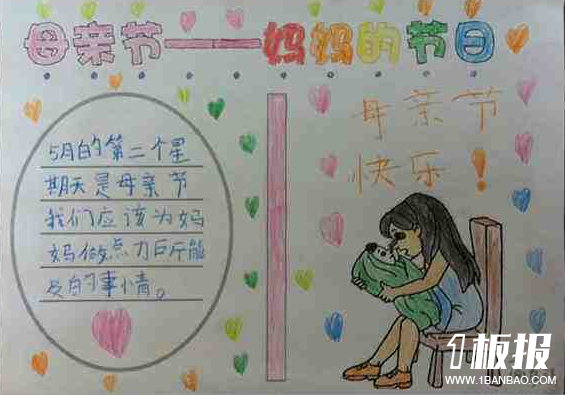 母亲节——妈妈的节日
5月的第二个星
期天是母亲节
我们应该为妈
妈做点力所能
及的事情。
母亲节
快乐！
1板报
WWW.1BANBAO.COM